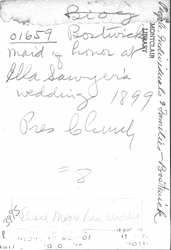 Biog
01659 Bostwick
Maid of honor at
Ella Sawyer's
wedding 1899
Pres Church
#8
3995
MONTCLAIR
LIBRARY
People, Individuals & Families - Bostwick